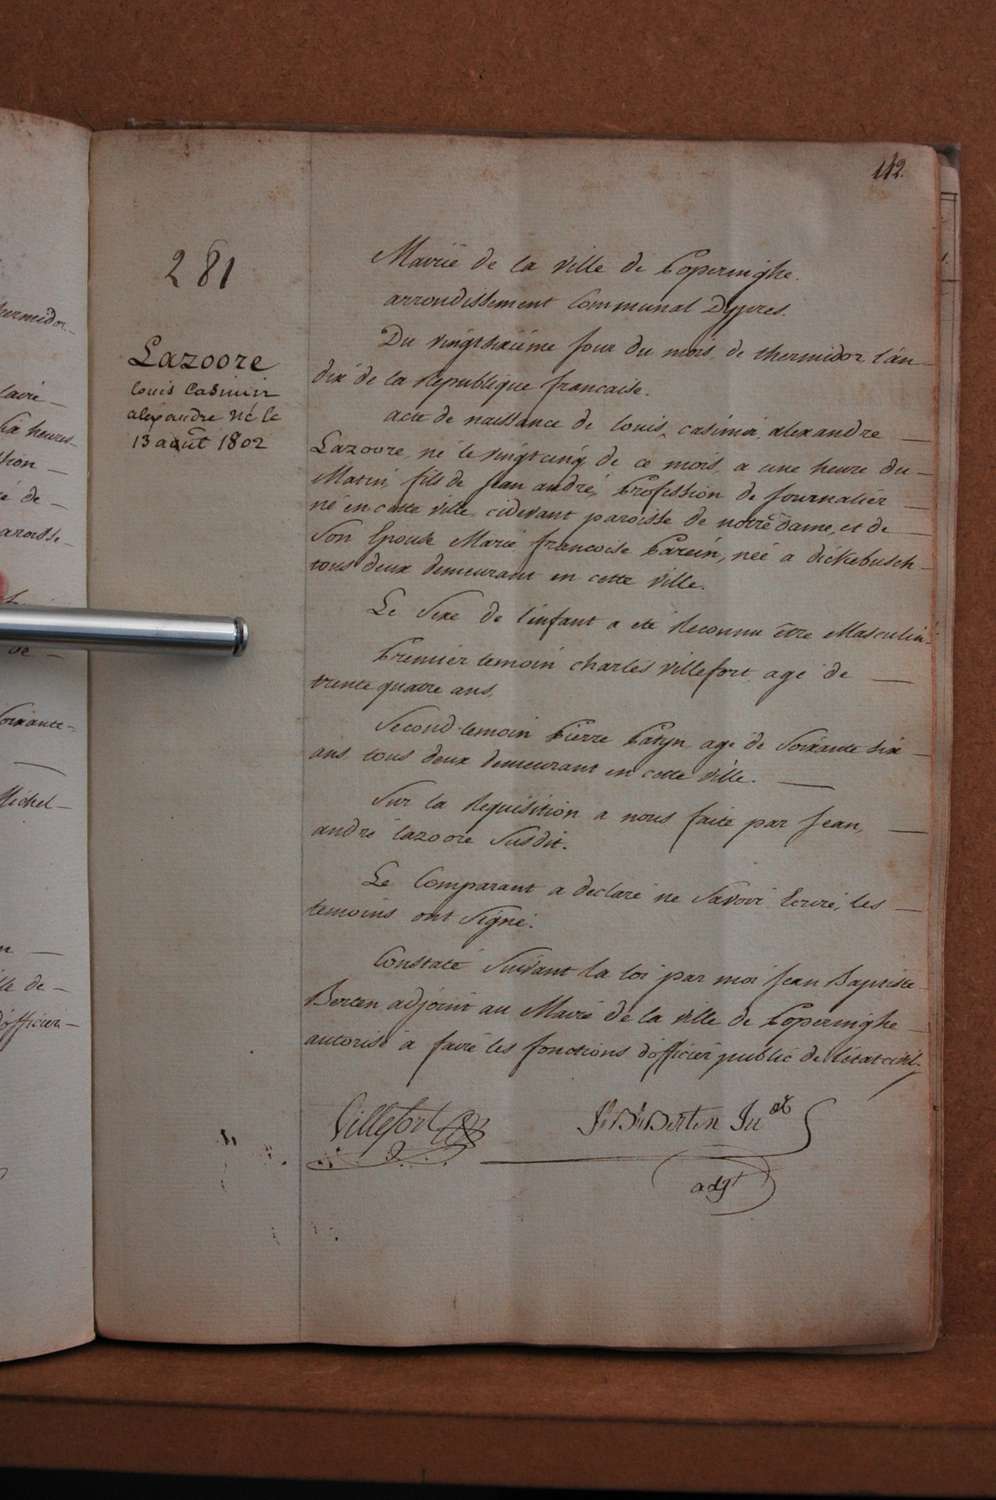 112.
281
Lazoore
louis Casimir
alexandre né le
13 août 1802
Mairie de la ville de Poperinghe.
arrondissement Communal Dypres.
Du vingtsixième jour du mois de thermidor l'an
dix de la republique francaise.
acte de naissance de louis, casimir, alexandre
Lazoore, né le vingt cinq de ce mois, a une heure du
Matin, fils de jean andré, Profession de journalier
né en cette ville, cidevant paroisse de notre dame, et de
Son Epouse Marie francoise Parein, née a dickebusch
tous deux demeurant en cette ville.
Le Sexe de l'infant a eté Reconnu être Masculin.
Premier temoin charles villefort, agé de
trente quatre ans,
Second temoin Pierre Patyn, agé de Soixante six
ans tous deux demeurant en cette ville.
Sur la Requisition a nous faite par Jean,
andré lazoore Susdit.
Le Comparant a declaré ne Savoir Ecrire, les
temoins ont Signé.
Constaté Suivant la loi par moi Jean Baptiste
Berten adjoint au Maire de la ville de Poperinghe
autorisé a faire les fonctions d'officier public de l'état civil.
Villefort
J. B. Berten
adjt
urmidor
heures
de
Soixante
Michel
de
d'officier